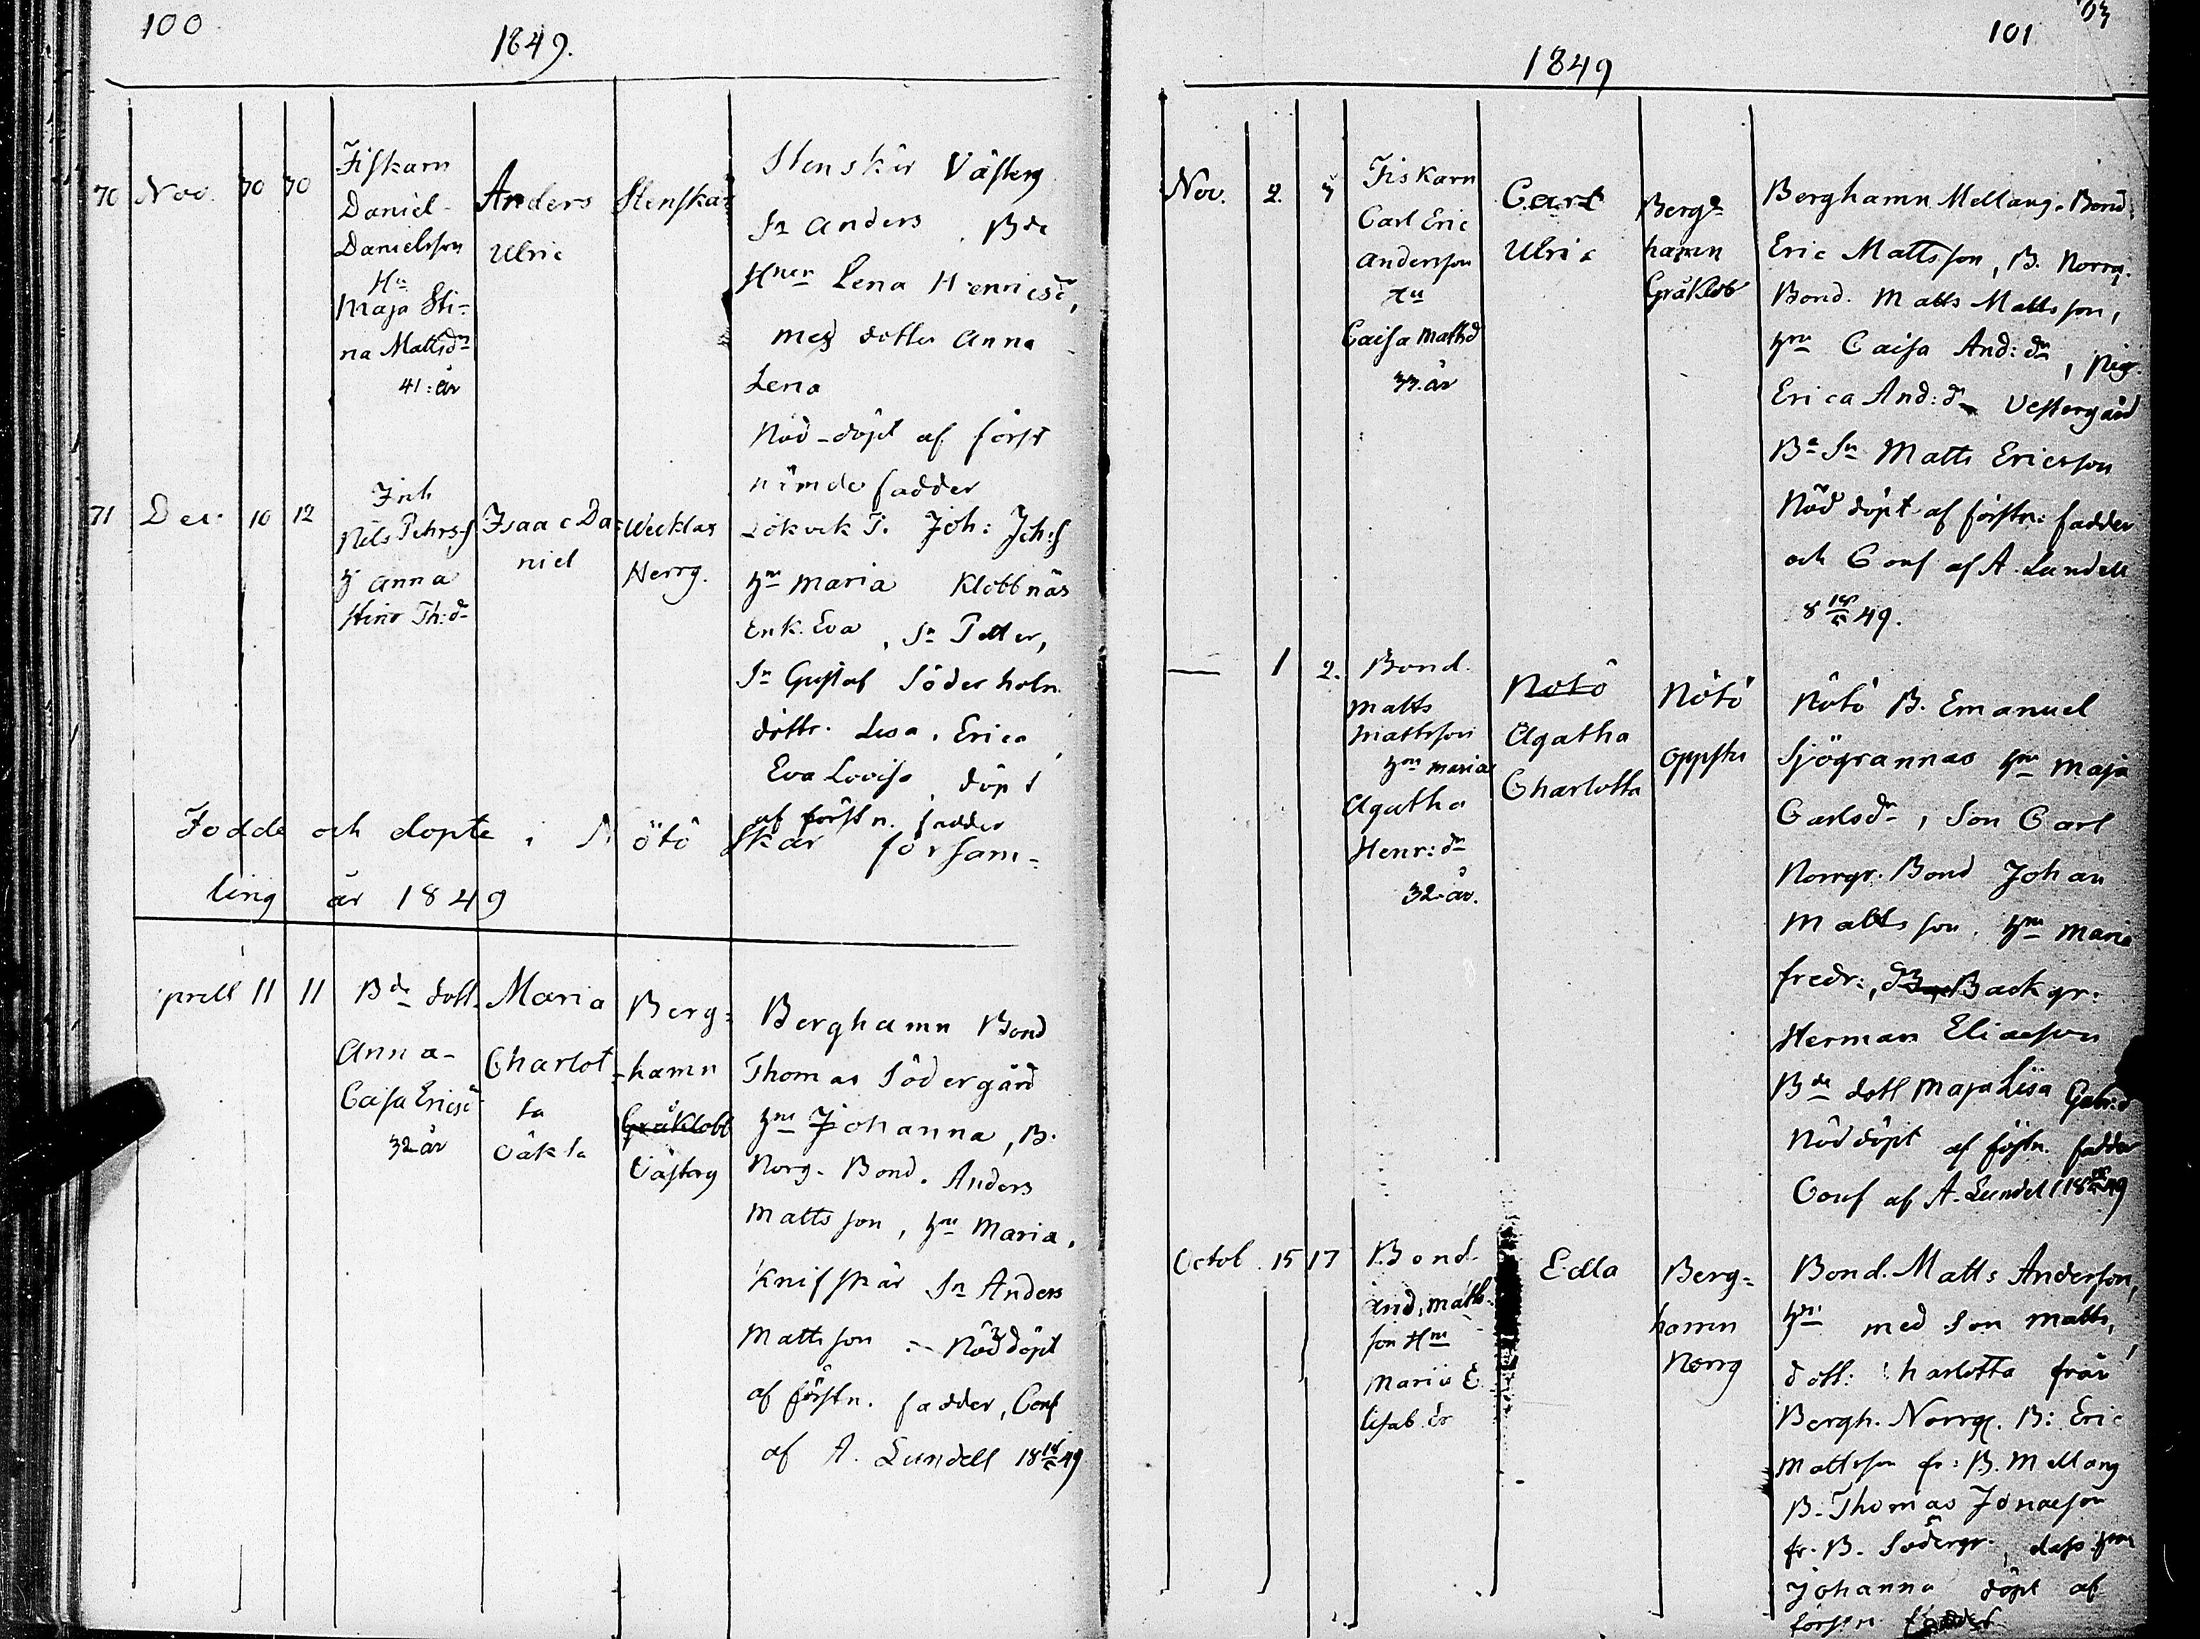 100
1849.
70 Nov. 30 30
Fiskarn
Daniel
Danielsson
Hu
Maja Sti-
na Mattsdr
41: år
Anders
Ulric
Stenskär
Stenskär Västerg
Sn Anders Bde
Hner Lena Henricsd,
med dotter Anna
Lena
Nöd-döpt af först
nämde fadder
71 Dec. 10 12
Inh
Nils Pehrss
h Anna
Stina Th:dr
Isaac Da-
niel
Wecklax
Norrg.
Lökvik T. Joh: Joh:s
hu Maria Klobbnäs
Enk. Eva, Sn Petter,
Sn Gustaf Söderholm
döttr. Lisa, Erica
Eva Lovisa döpt
af förstn. fadder
Födde och döpte i Nötö Skär försam-
ling år 1849
prill 11 11
Bde dott.
Anna
Caisa Ericsd
32 år
Maria
Charlot-
ta
oäkta
Berg-
hamn
Gråklobb
Västerg
Berghamn Bond
Thomas Södergård
hu Johanna, B.
Norg. Bond. Anders
Mattsson, hu Maria,
Knifskär Sn Anders
Mattsson Nöddöpt
af förstn. fadder, Conf
af A. Lundell 18 18/6 49
101
1849
Nov. 2. 7
Fiskarn
Carl Eric
Andersson
Hu
Caisa Mattsd
33 år
Carl
Ulric
Berg-
hamn
Gråklob
Berghamn Mellang. Bond.
Eric Mattsson, B. Norrg.
Bond. Matts Mattsson,
hu Caisa And:dr, pig.
Erica And:dr Vestergård
Be Sn Matts Ericsson
Nöd döpt af förstn: fadder
och Conf af A. Lundell
49.
— 1 2.
Bond.
Matts
Mattsson
hu Maria
Agatha
Henr:dr
32 år.
Nötö
Agatha
Charlotta
Nötö
Oppstu
Nötö B. Emanuel
Sjögrannas hu Maja
Carlsdr, Son Carl
Norrgr. Bond Johan
Mattsson, hu Maria
fredr:, d Backgr.
Herman Eliasson
Bde dott Maja Lisa Gabr:d
Nöd döpt af förstn. fadder
Conf af A. Lundell
Octob. 15 17
Bond.
And. Matts-
son Hu
Maria E
lisab.
Edla
Berg-
hamn
Norrg
Bond. Matts Andersson,
hu med Son Matts,
dott: Charlotta från
Bergh. Norrg. B: Eric
Mattsson fr: B. Mellang
B. Thomas Jonasson
fr. B. Södergr. dess hu
Johanna döpt af
förstn fadder